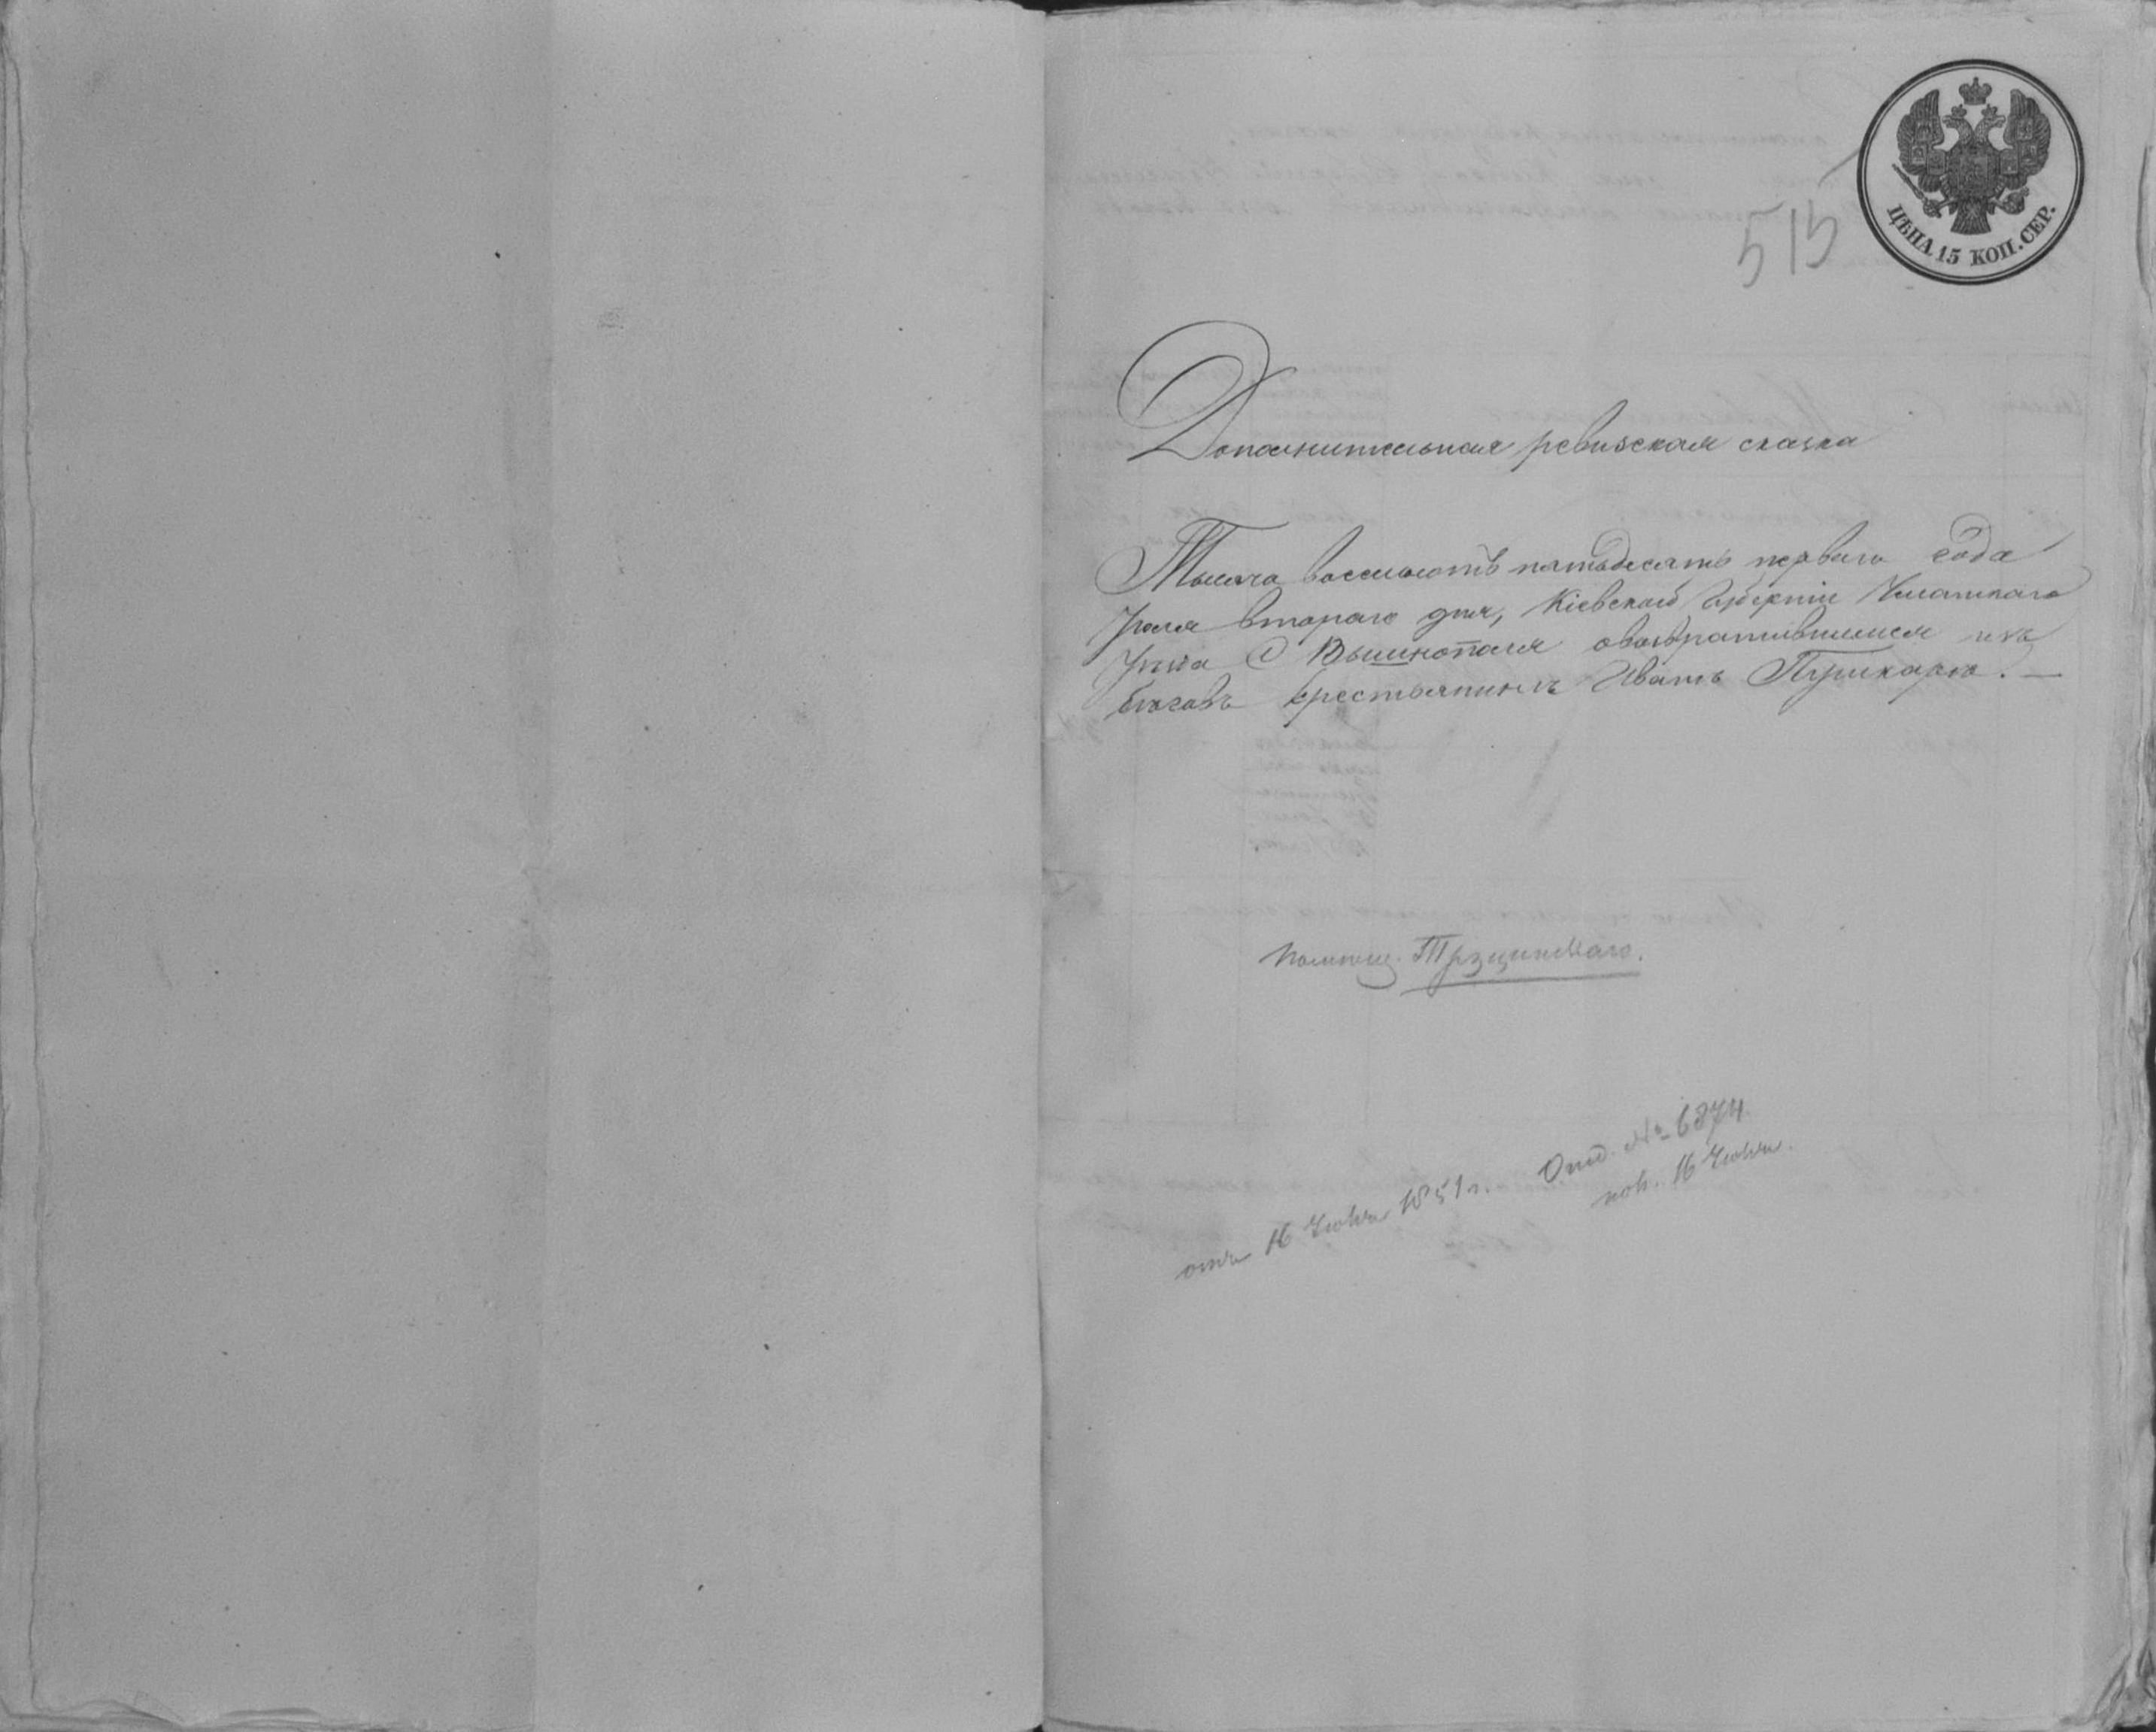 515
ЦѢНА 15 КОП. СЕР.
Дополнительная ревизская сказка
Тысяча восемьсотъ пятьдесятъ перваго года
Іюля втораго дня, Кіевской Губерніи Уманскаго
Уѣзда С Вышнополя овозвратившимся изъ
бѣговъ крестьянинѣ Иванѣ Пушкарю. —
Помѣщ. Трзцинскаго.
Отд. № 6874
пов. 16 Іюля.
отъ 16 Іюля 1851 г.